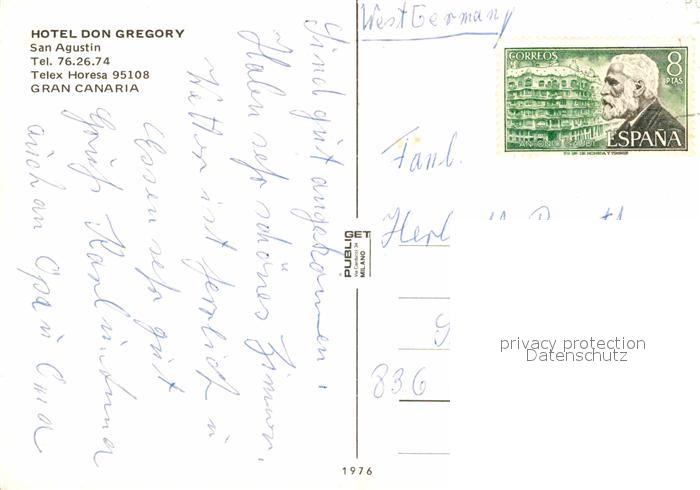 HOTEL DON GREGORY
San Agustin
Tel. 76.26.74
Telex Horesa 95108
GRAN CANARIA
West Germany
CORREOS
8
PTAS
ANTONIO GAUDI
ESPAÑA
Sind gut angekommen,
Haben sehr schönes Zimmer,
Wetter ist herrlich u
Essen sehr gut
Gruß Karl u Anna
auch an Opa u Oma
Fam.
PUBLIGET
MILANO
836
privacy protection
Datenschutz
1976